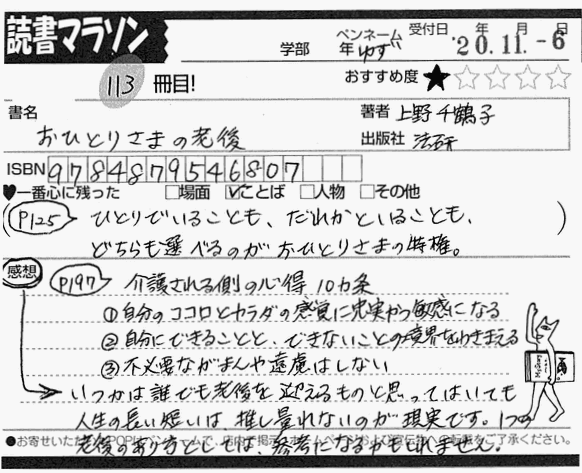 読書マラソン
学部 年 ペンネーム ゆず 受付日 年 月 日 '20.11.-6
113 冊目! おすすめ度 ★☆☆☆☆
書名 著者 上野千鶴子
おひとりさまの老後 出版社 法研
ISBN 9784879546807
♥一番心に残った □場面 ☑ことば □人物 □その他
(P125) ひとりでいることも、だれかといることも、
どちらも選べるのがおひとりさまの特権。
感想 P197 介護される側の心得 10カ条
①自分のココロとカラダの感覚に忠実かつ敏感になる
②自分にできることと、できないことの境界をわきまえる
③不必要ながまんや遠慮はしない
→いつかは誰でも老後を迎えるものと思ってはいても
人生の長い短いは、推し量れないのが現実です。1つの
●お寄せいただいたPOPはペンネームで、店内で掲示、ホームページおよび宣伝物への転載をご了承ください。
老後のあり方としては、参考になるかもしれません。